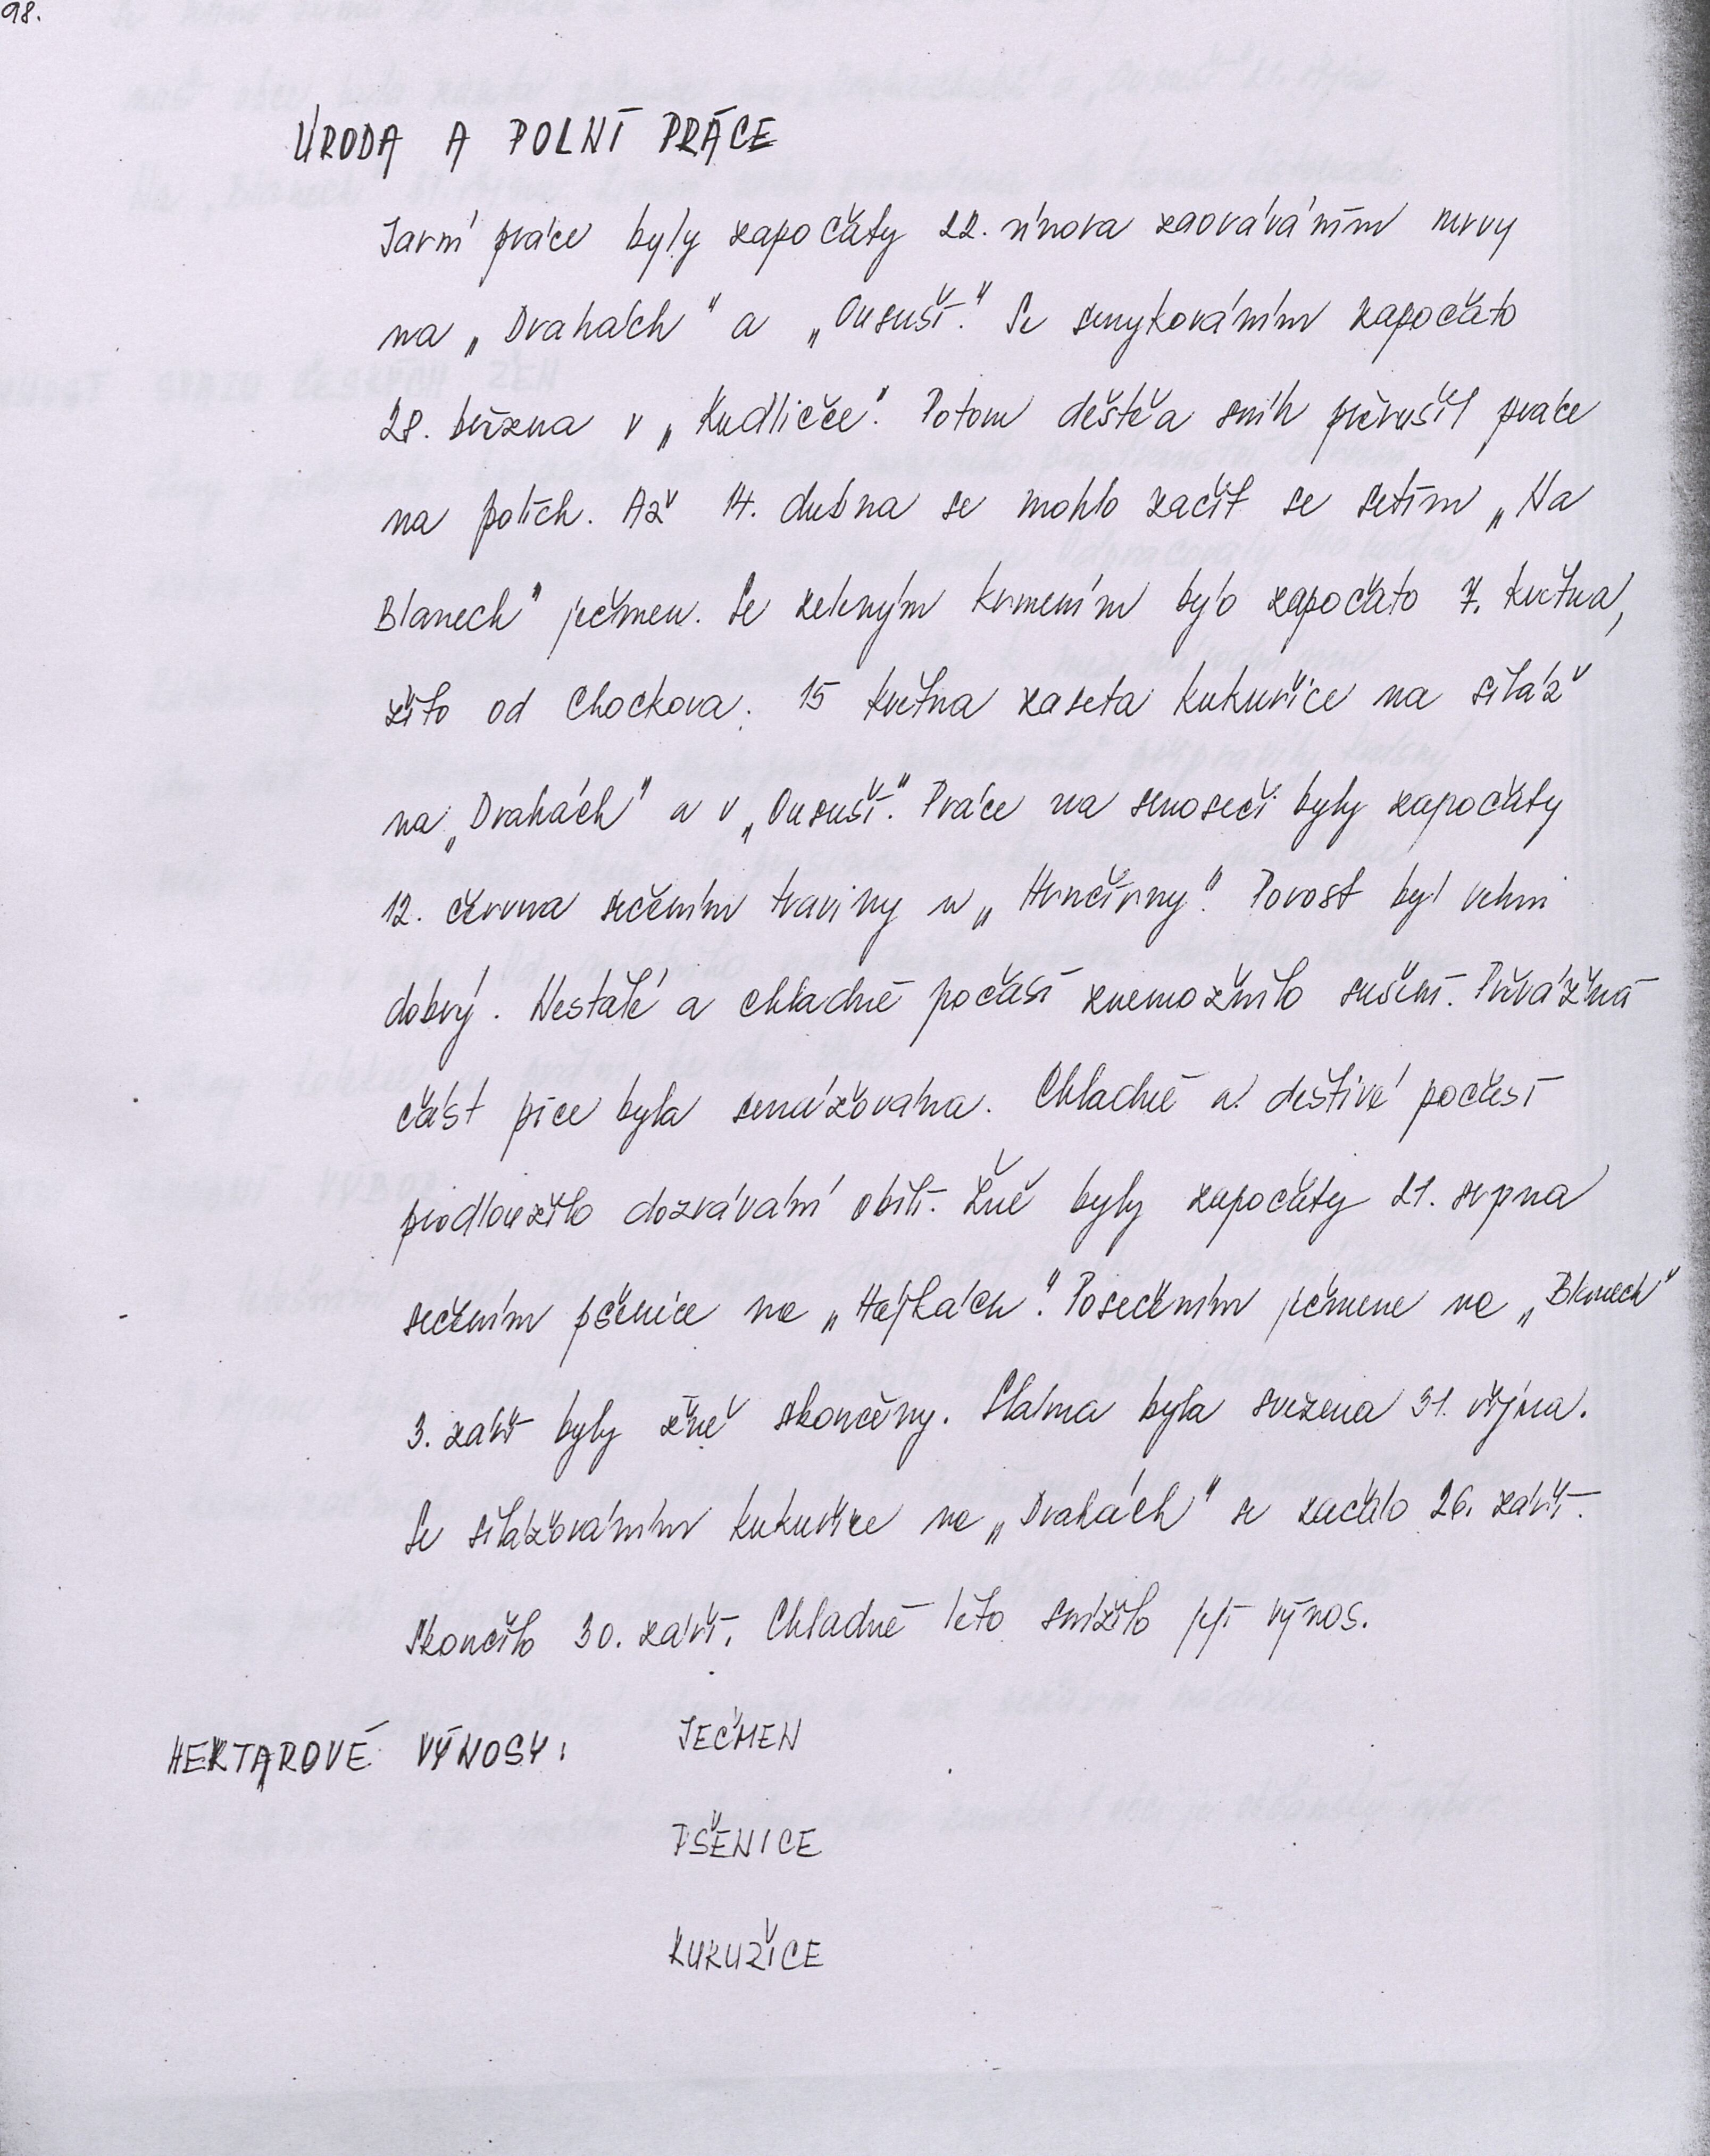 98.
ÚRODA A POLNÍ PRÁCE
Jarní práce byly započaty 22. února zaoráváním mrvy
na „Drahách" a „Oususí." Se smykováním započato
28. března v „Kudličce". Potom déšť a sníh přerušil práce
na polích. Až 14. dubna se mohlo začít se setím „Na
Blanech" ječmen. Se zeleným krmením bylo započato 7. května,
žito od Chockova. 15 května zaseta kukuřice na siláž
na „Drahách" a v „Oususí." Práce na senoseči byly započaty
12. června sečením traviny u „Hrnčírny". Porost byl velmi
dobrý. Nestálé a chladné počasí znemožnilo sušení. Převážná
část píce byla senážována. Chladné a deštivé počasí
prodloužilo dozrávání obilí. Žně byly započaty 21. srpna
sečením pšenice na „Hájkách". Posečením ječmene na „Blanech"
3. září byly žně skončeny. Sláma byla svezena 31. října.
Se silážováním kukuřice na „Drahách" se začalo 26. září.
Skončilo 30. září. Chladné léto snížilo její výnos.
HEKTAROVÉ VÝNOSY: JEČMEN
PŠENICE
KUKUŽICE